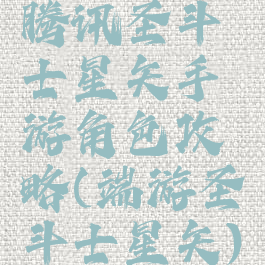 腾讯圣斗
士星矢手
游角色攻
略(端游圣
斗士星矢)